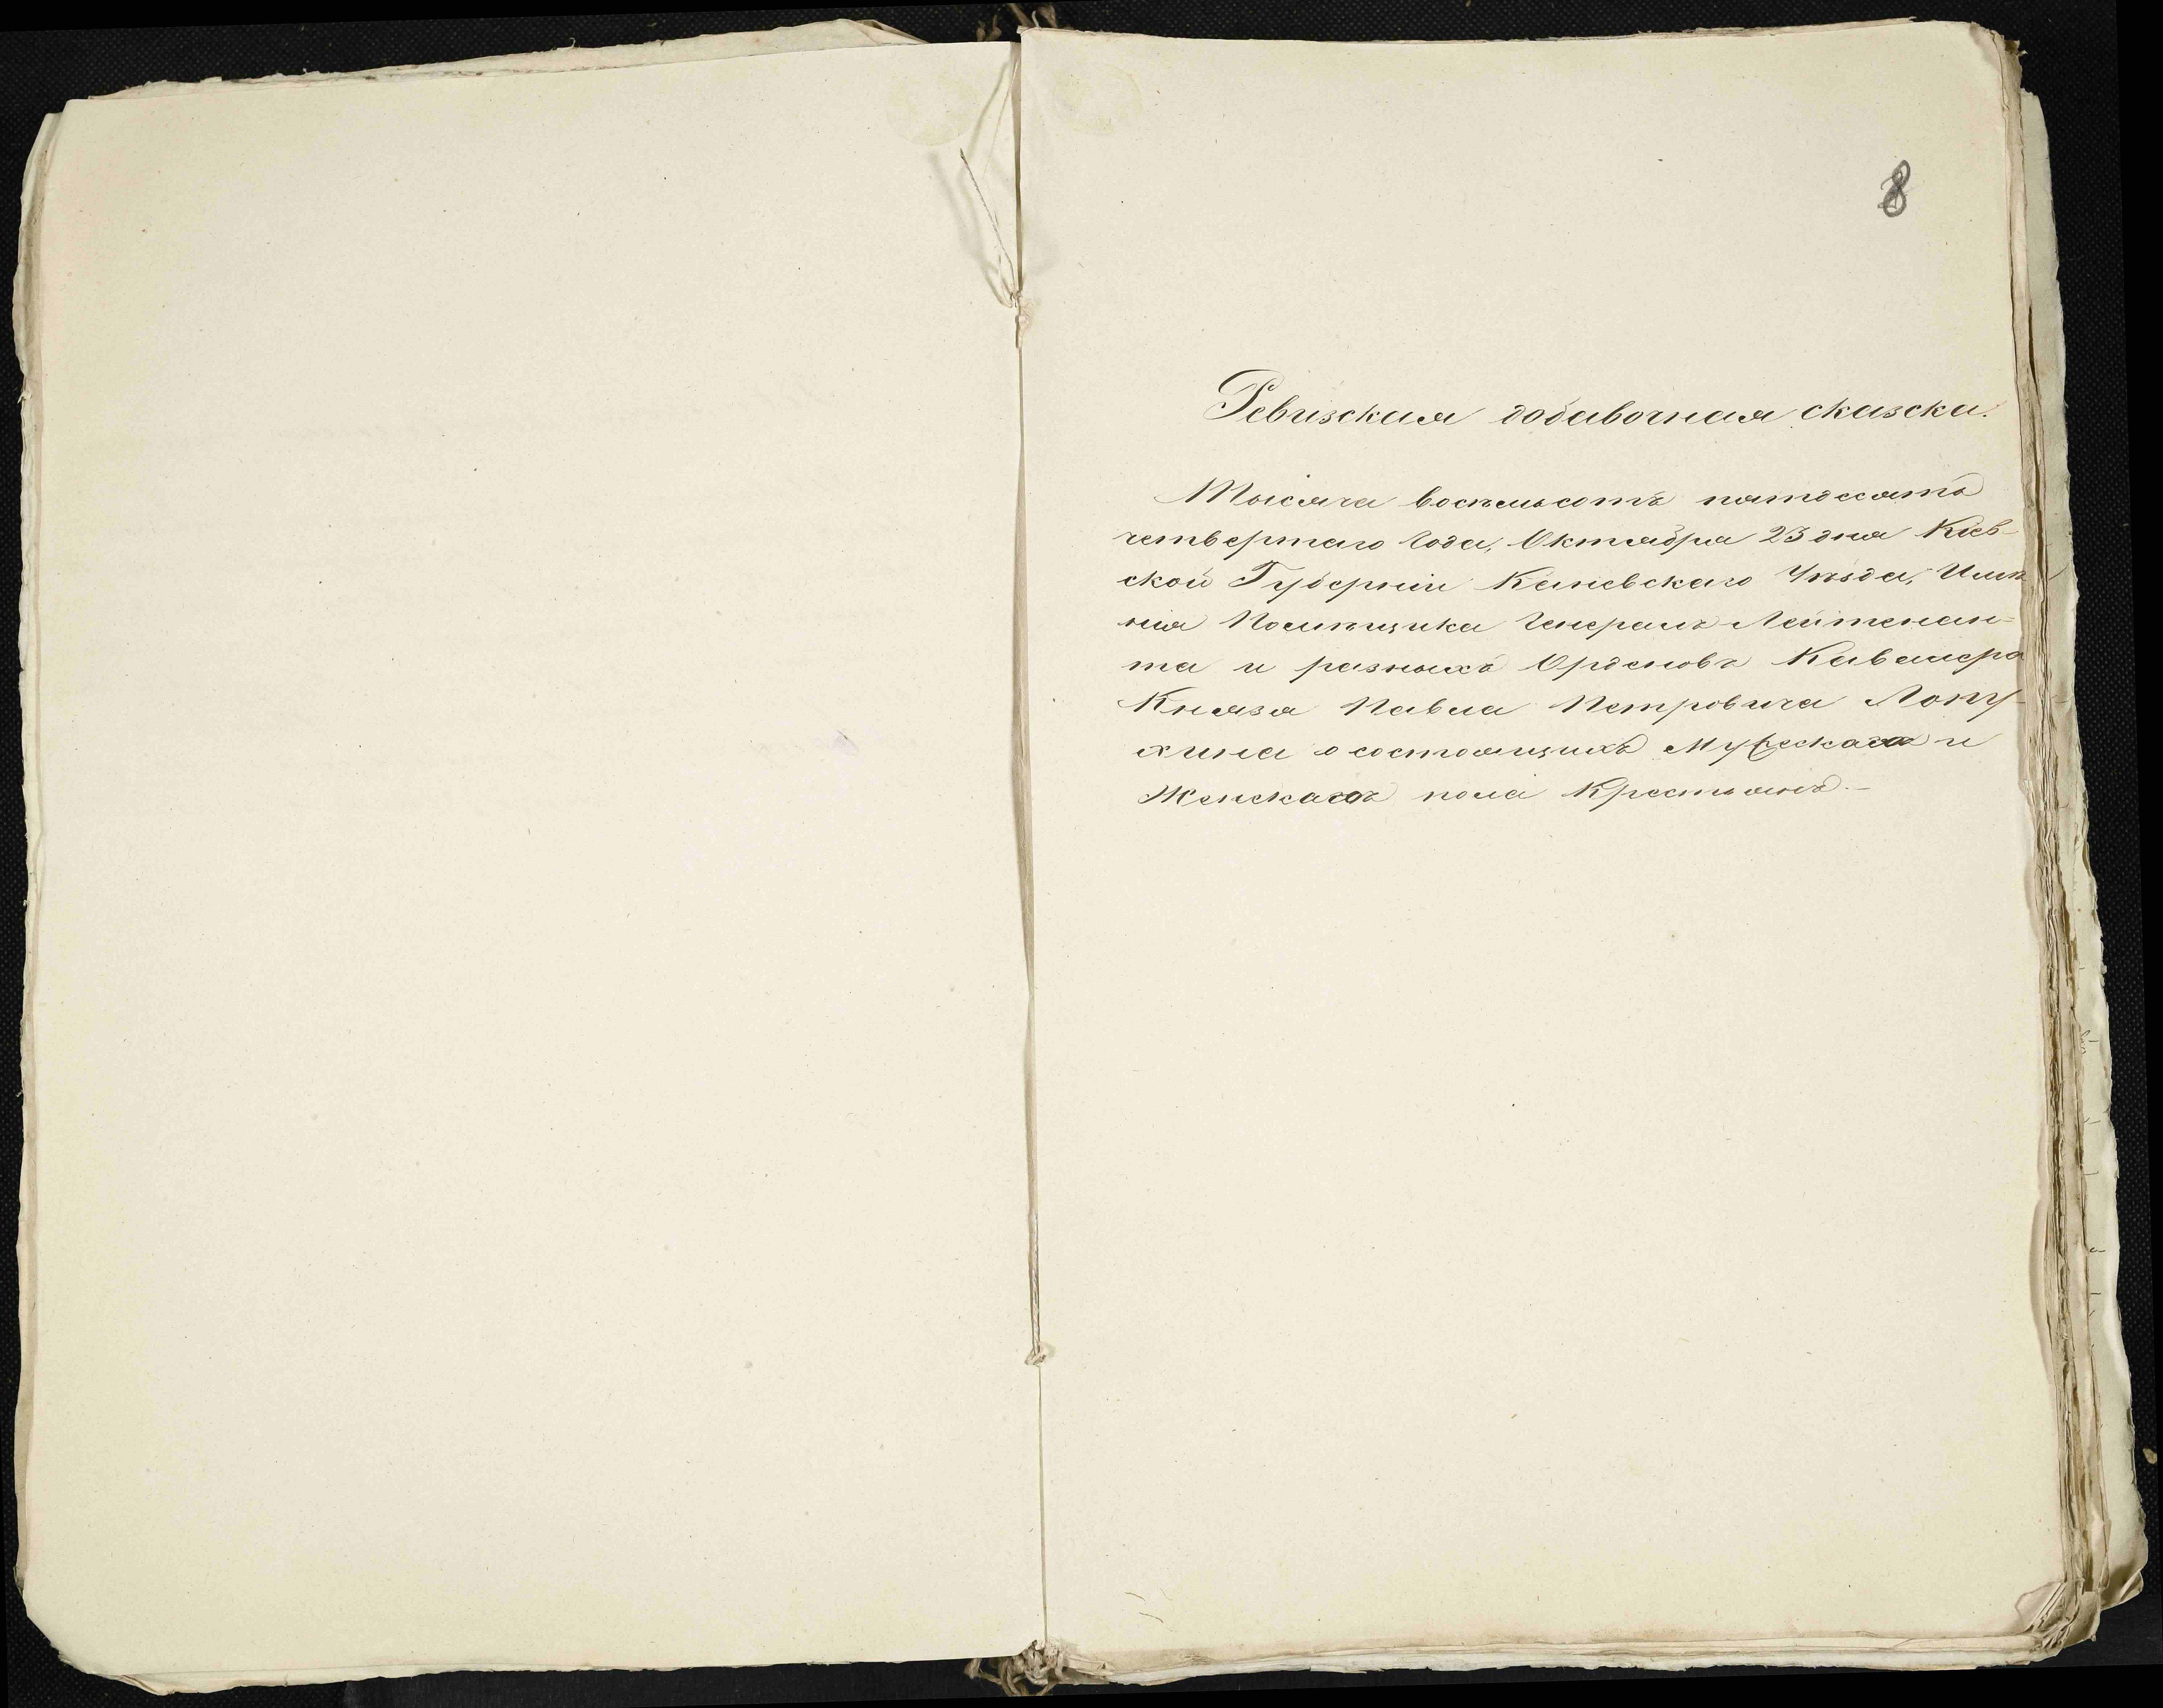 8
Ревизская добавочная сказска.
Тысяча восемьсотъ пятдесятъ
четвертаго Года, Октября 23 дня Кіев-
ской Губерніи Каневскаго Уѣзда, Имѣ
нія Помѣщика Генералъ Лейтенан-
та и разныхъ Орденовъ Кавалера
Князя Павла Петровича Лопу-
хина о состоящихъ Мужеска и
Женска пола Крестьянъ.-